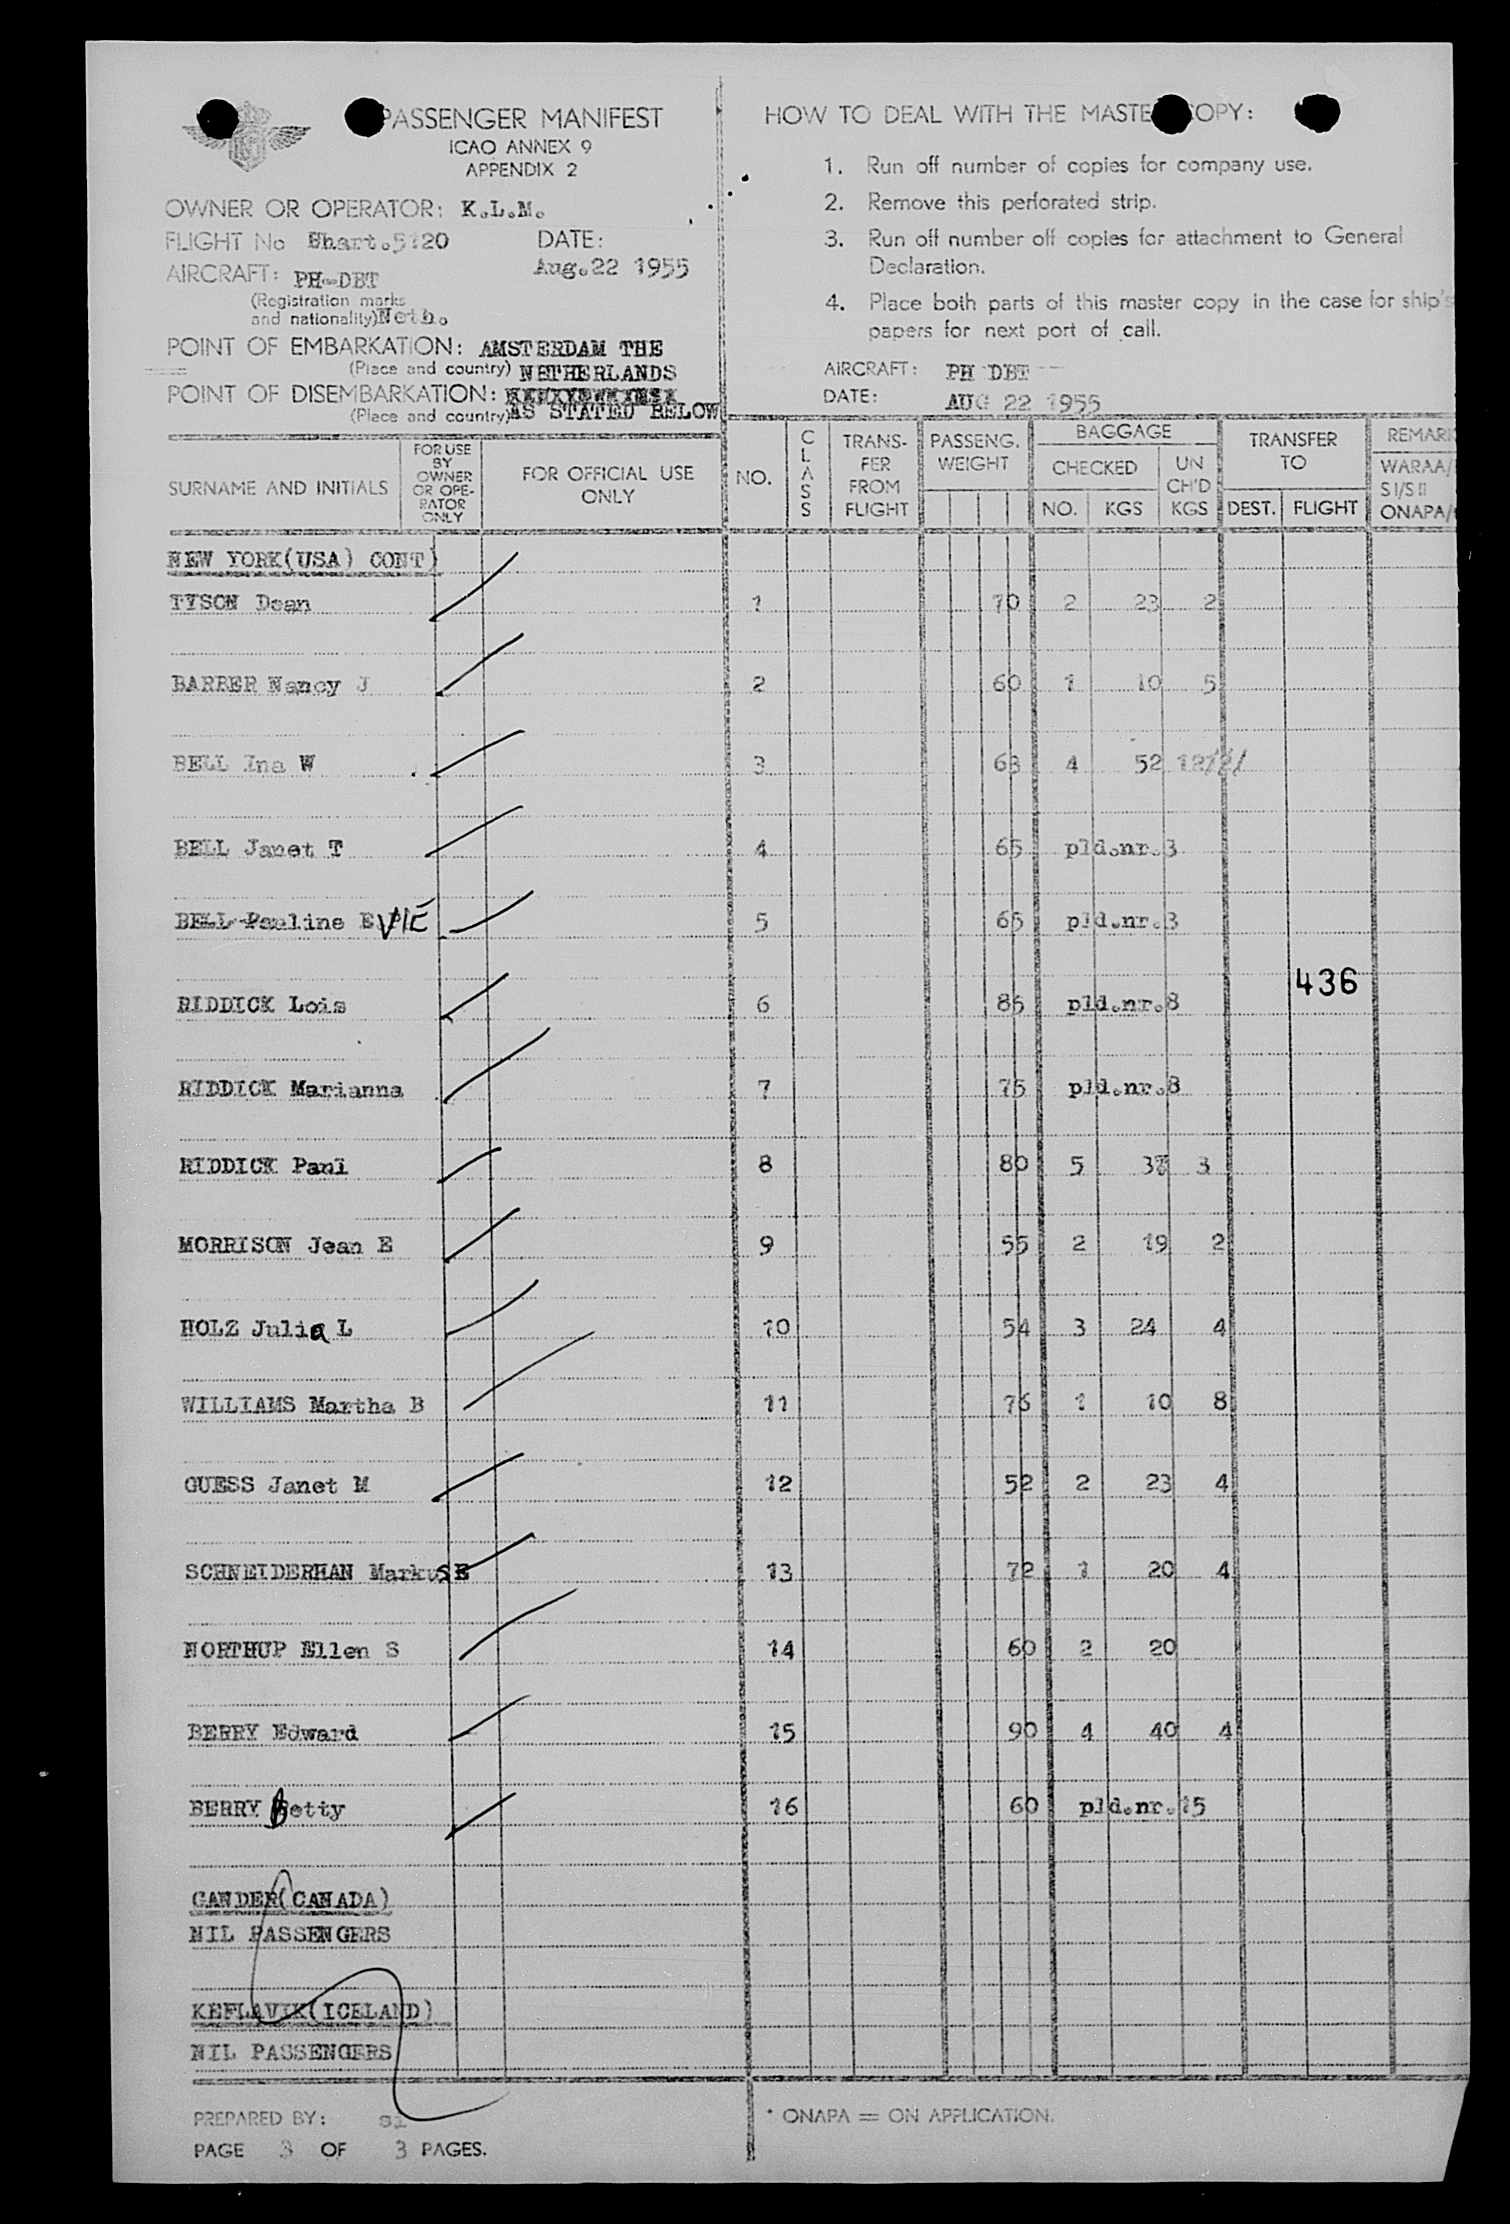 PASSENGER MANIFEST
ICAO ANNEX 9
APPENDIX 2
OWNER OR OPERATOR: K.L.M.
FLIGHT No Chart.5120
DATE:
Aug.22 1955
AIRCRAFT: PH-DBT
(Registration marks
and nationality) Neth.
POINT OF EMBARKATION: AMSTERDAM THE
(Place and country) NETHERLANDS
POINT OF DISEMBARKATION:
(Place and country) AS STATED BELOW
HOW TO DEAL WITH THE MASTER COPY:
1. Run off number of copies for company use.
2. Remove this perforated strip.
3. Run off number off copies for attachment to General
Declaration.
4. Place both parts of this master copy in the case for ship's
papers for next port of call.
AIRCRAFT: PH DBT
DATE: AUG 22 1955
SURNAME AND INITIALS
FOR USE
BY
OWNER
OR OPE-
RATOR
ONLY
FOR OFFICIAL USE
ONLY
NO.
CLASS
TRANS-
FER
FROM
FLIGHT
PASSENG.
WEIGHT
BAGGAGE
CHECKED
NO. KGS
UN
CH'D
KGS
TRANSFER
TO
DEST. FLIGHT
REMARK
WARAA/
S I/S II
ONAPA/
NEW YORK(USA) CONT)
TYSON Dean 1 70 2 23 2
BARBER Nancy J 2 60 1 10 5
BELL Ina W 3 63 4 52 12/2/
BELL Janet T 4 65 pld.nr.3
BELL Pauline E VIE 5 65 pld.nr.3
436
RIDDICK Lois 6 85 pld.nr.8
RIDDICK Marianna 7 75 pld.nr.8
RIDDICK Paul 8 80 5 37 3
MORRISON Jean E 9 55 2 19 2
HOLZ Julia L 10 54 3 24 4
WILLIAMS Martha B 11 76 1 10 8
GUESS Janet M 12 52 2 23 4
SCHNEIDERHAN Markus E 13 72 1 20 4
NORTHUP Ellen S 14 60 2 20
BERRY Edward 15 90 4 40 4
BERRY Betty 16 60 pld.nr.15
GANDER(CANADA)
NIL PASSENGERS
KEFLAVIK(ICELAND)
NIL PASSENGERS
PREPARED BY: si
* ONAPA = ON APPLICATION.
PAGE 3 OF 3 PAGES.